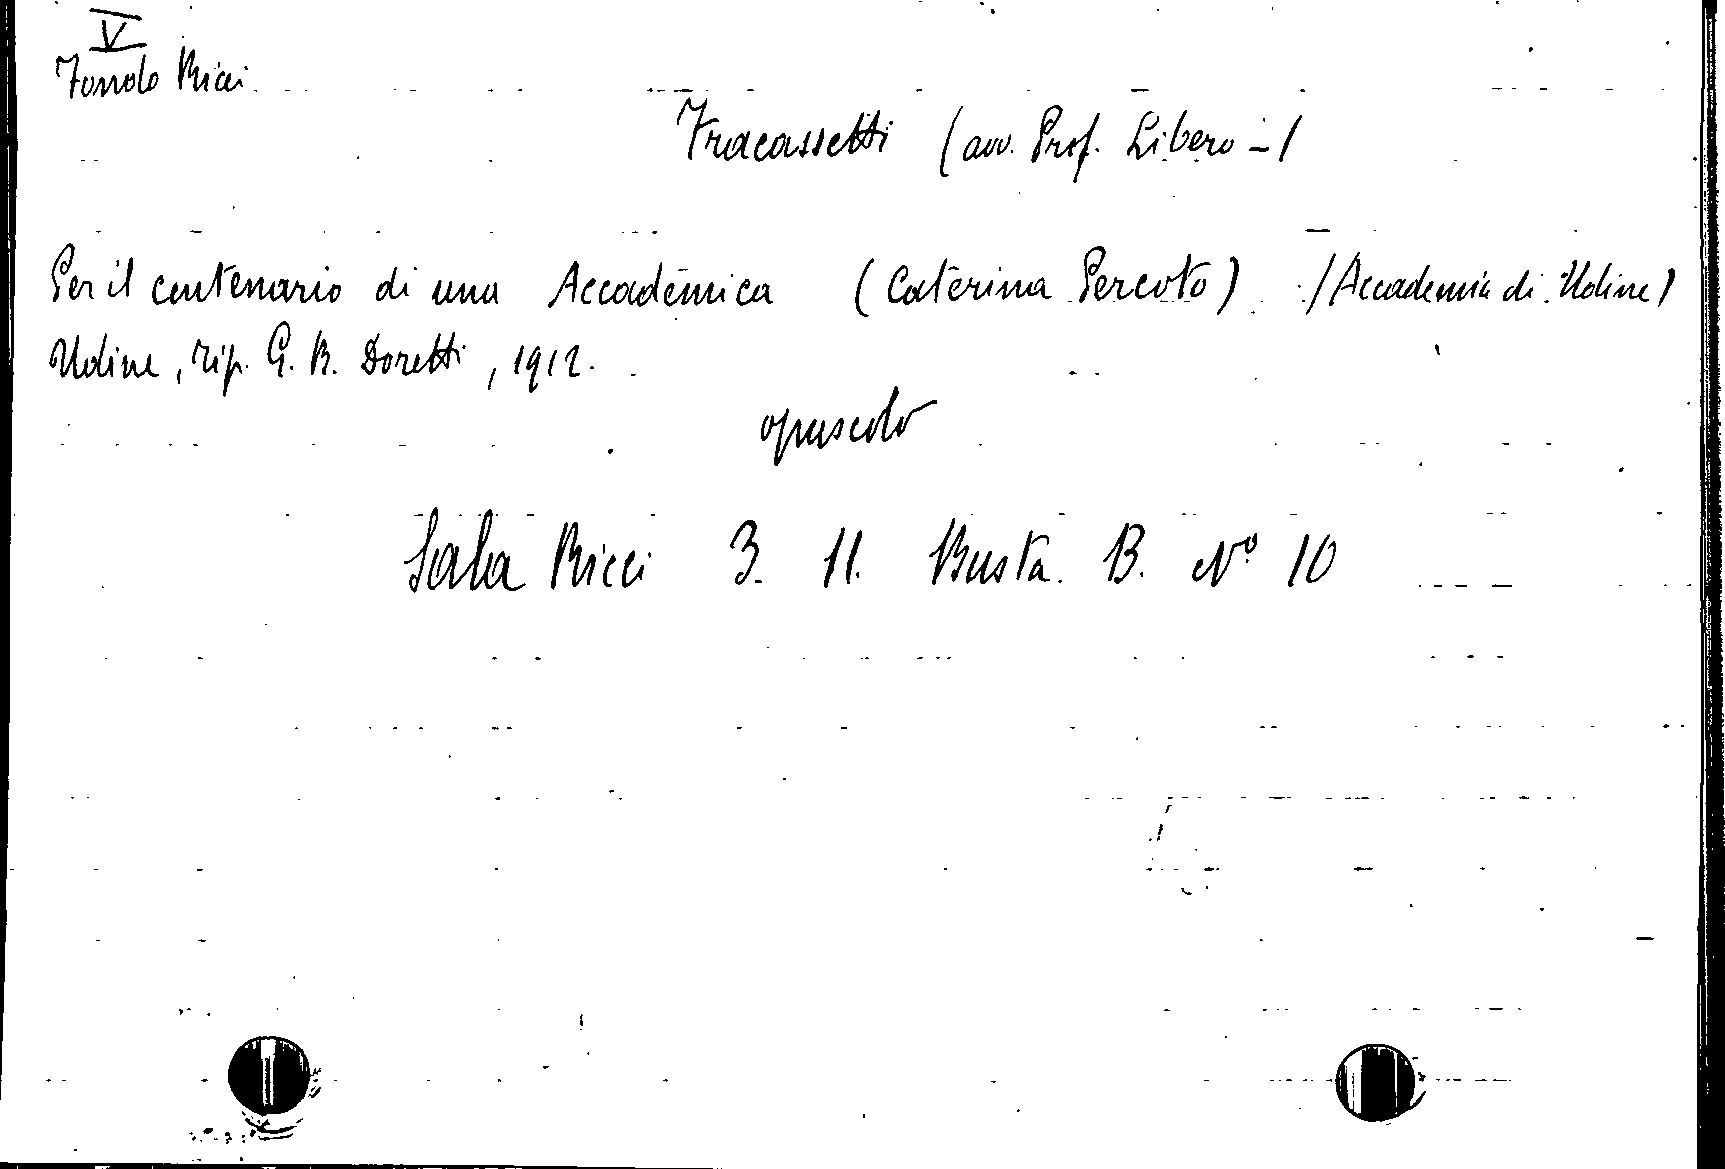 V
Fondo Ricci
Fracassetti (avv. Prof. Libero -)
Per il centenario di una Accademica (Caterina Percoto) /Accademia di Udine/
Udine, tip. G. B. Doretti, 1912.
opuscolo
Sala Ricci 3. 11. Busta. B. N° 10